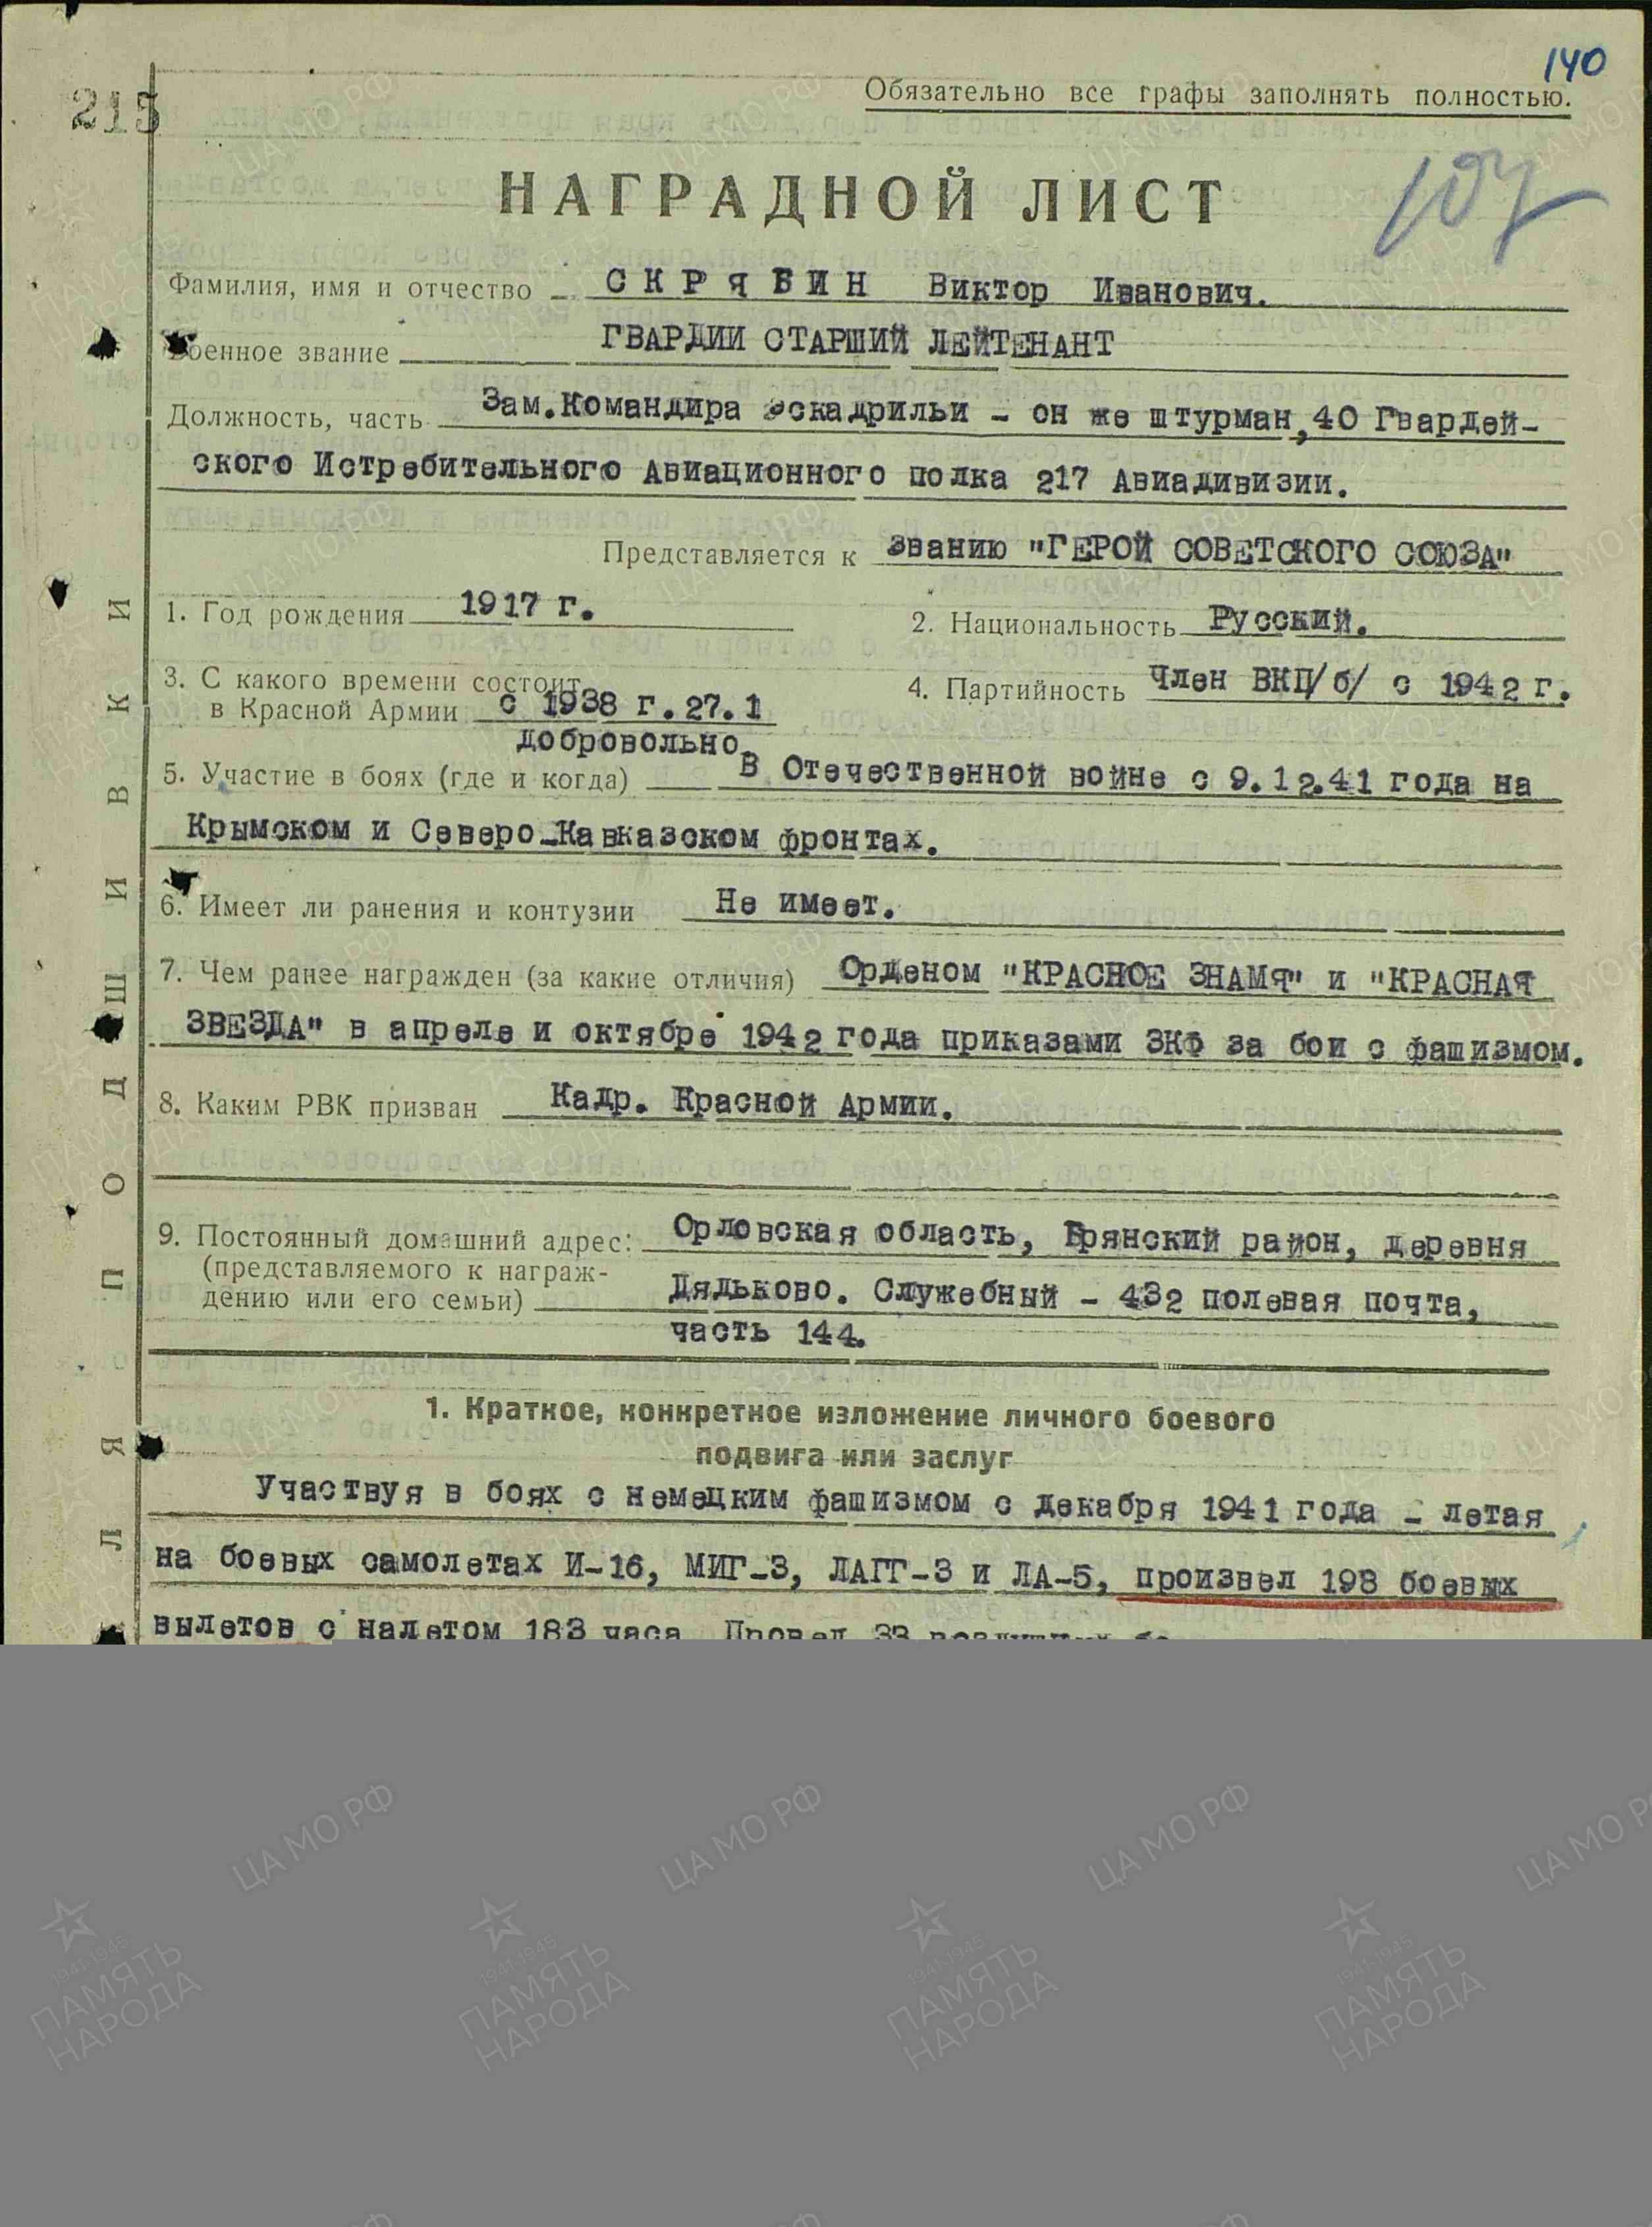 140
Обязательно все графы заполнять полностью.
215
НАГРАДНОЙ ЛИСТ
107
Фамилия, имя и отчество СКРЯБИН Виктор Иванович.
Военное звание ГВАРДИИ СТАРШИЙ ЛЕЙТЕНАНТ
Должность, часть Зам.Командира Эскадрильи - он же штурман,40 Гвардей-
ского Истребительного Авиационного полка 217 Авиадивизии.
Представляется к званию "ГЕРОЙ СОВЕТСКОГО СОЮЗА"
1. Год рождения 1917 г.
2. Национальность Русский.
3. С какого времени состоит
в Красной Армии с 1938 г.27.1
добровольно
4. Партийность Член ВКП/б/ с 1942 г.
5. Участие в боях (где и когда) В Отечественной войне с 9.12.41 года на
Крымском и Северо-Кавказском фронтах.
6. Имеет ли ранения и контузии Не имеет.
7. Чем ранее награжден (за какие отличия) Орденом "КРАСНОЕ ЗНАМЯ" и "КРАСНАЯ
ЗВЕЗДА" в апреле и октябре 1942 года приказами ЗКФ за бои с фашизмом.
8. Каким РВК призван Кадр. Красной Армии.
9. Постоянный домашний адрес: Орловская область, Брянский район, деревня
(представляемого к награж-
дению или его семьи) Дядьково. Служебный - 432 полевая почта,
часть 144.
1. Краткое, конкретное изложение личного боевого
подвига или заслуг
Участвуя в боях с немецким фашизмом с декабря 1941 года - летая
на боевых самолетах И-16, МИГ-3, ЛАГГ-3 и ЛА-5, произвел 198 боевых
вылетов с налетом 183 часа. Провел 33
ЦА МО РФ
1941-1945
ПАМЯТЬ
НАРОДА